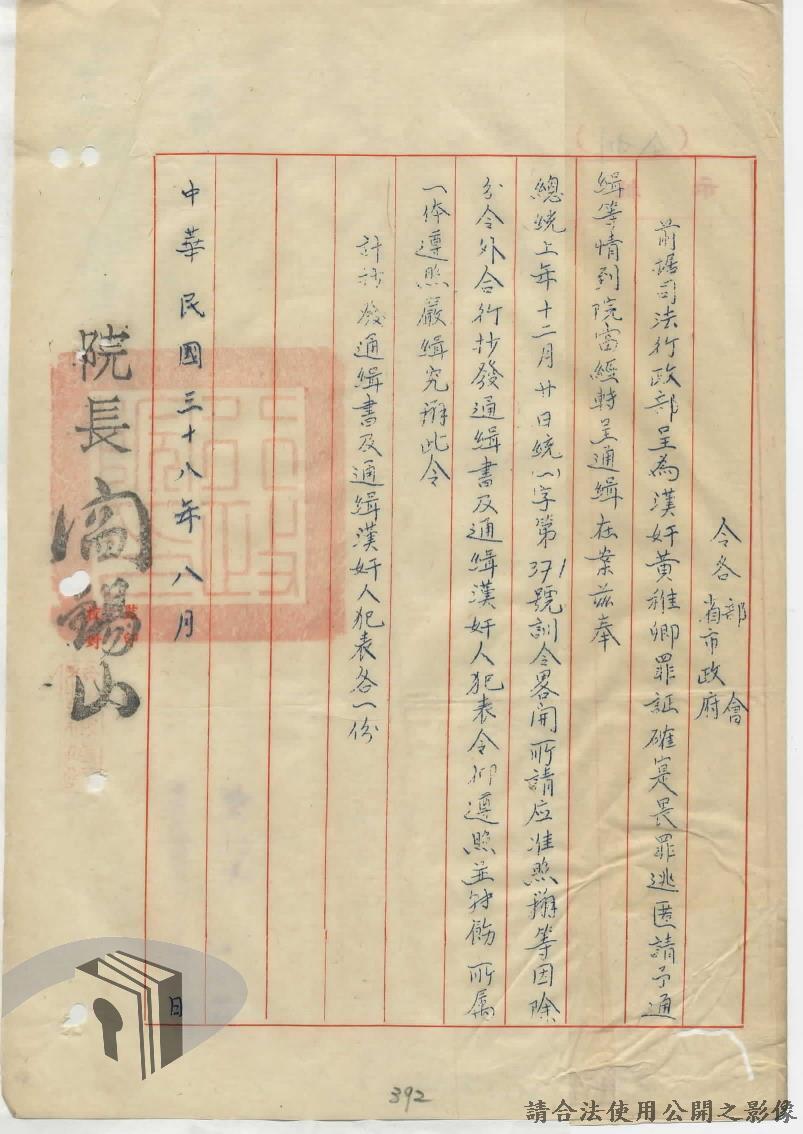 令各部會
省市政府
前據司法行政部呈為漢奸黃稚卿罪証確寔畏罪逃匿請予通
緝等情到院當經轉呈通緝在案茲奉
總統上年十二月廿日統(一)字第371號訓令畧開所請应准照辦等因除
分令外合行抄發通緝書及通緝漢奸人犯表令仰遵照並轉飭所属
一体遵照嚴緝究辦此令
計抄發通緝書及通緝漢奸人犯表各一份
中華民國三十八年八月 日
院長閻錫山
392
請合法使用公開之影像